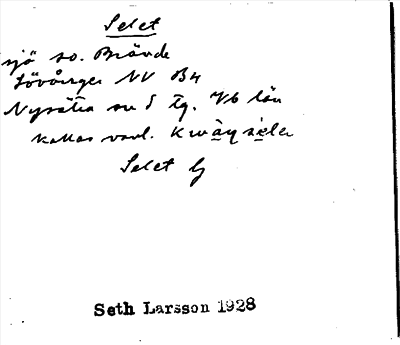 Selet
sjö so. Brände
Lövånger NV B4
Nysätra sn S tg. Vb län
kallas vanl.
Selet G
Seth Larsson 1928